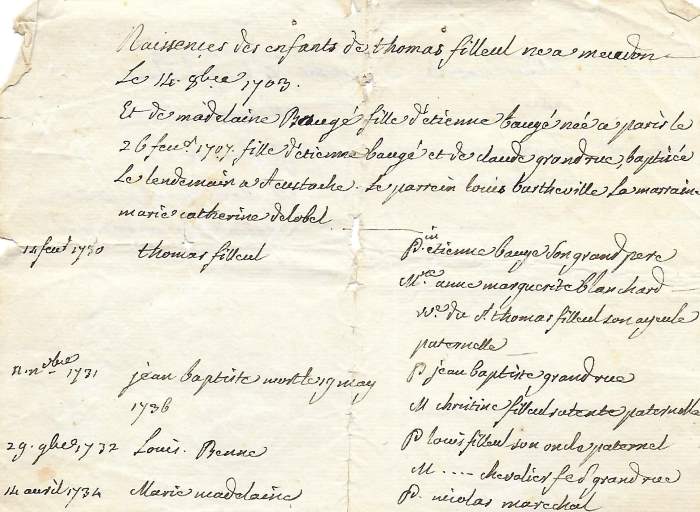 Naissences des enfants de thomas filleul ne a meudon
Le 14. 8bre 1703.
Et de madelaine Baugé fille d'étienne baugé née a paris le
26 feu.r 1707. fille d'étienne baugé et de claude grandrue, baptisée
Le lendemain a St eustache. Le parrein louis bartheville La marraine
marie catherine delobel
14 feu.r 1730 thomas filleul P.in étienne bauge son grand pere
M.ne anne marguerite blanchard
vve. du St. thomas filleul son ayeule
paternelle
9bre 1731 jean baptiste mort le 19 may P jean baptiste grandrue
1736 M christine filleul sa tente paternelle
29. 9bre 1732 Louis. P louis filleul son oncle paternel
M .... chevalier fe d grandrue
14 auril 1734 Marie madelaine P. nicolas marechal